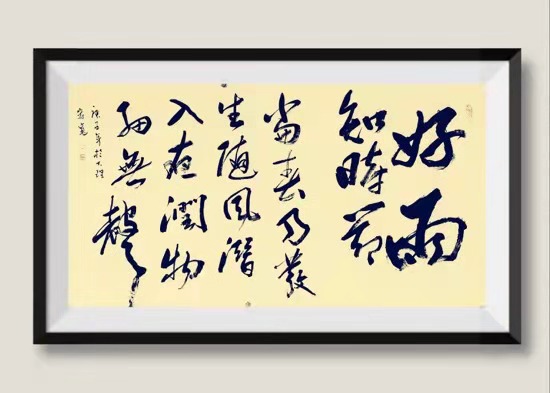 好雨
知時節
當春乃發
生随風潛
入夜潤物
細無聲
庚子年於大理